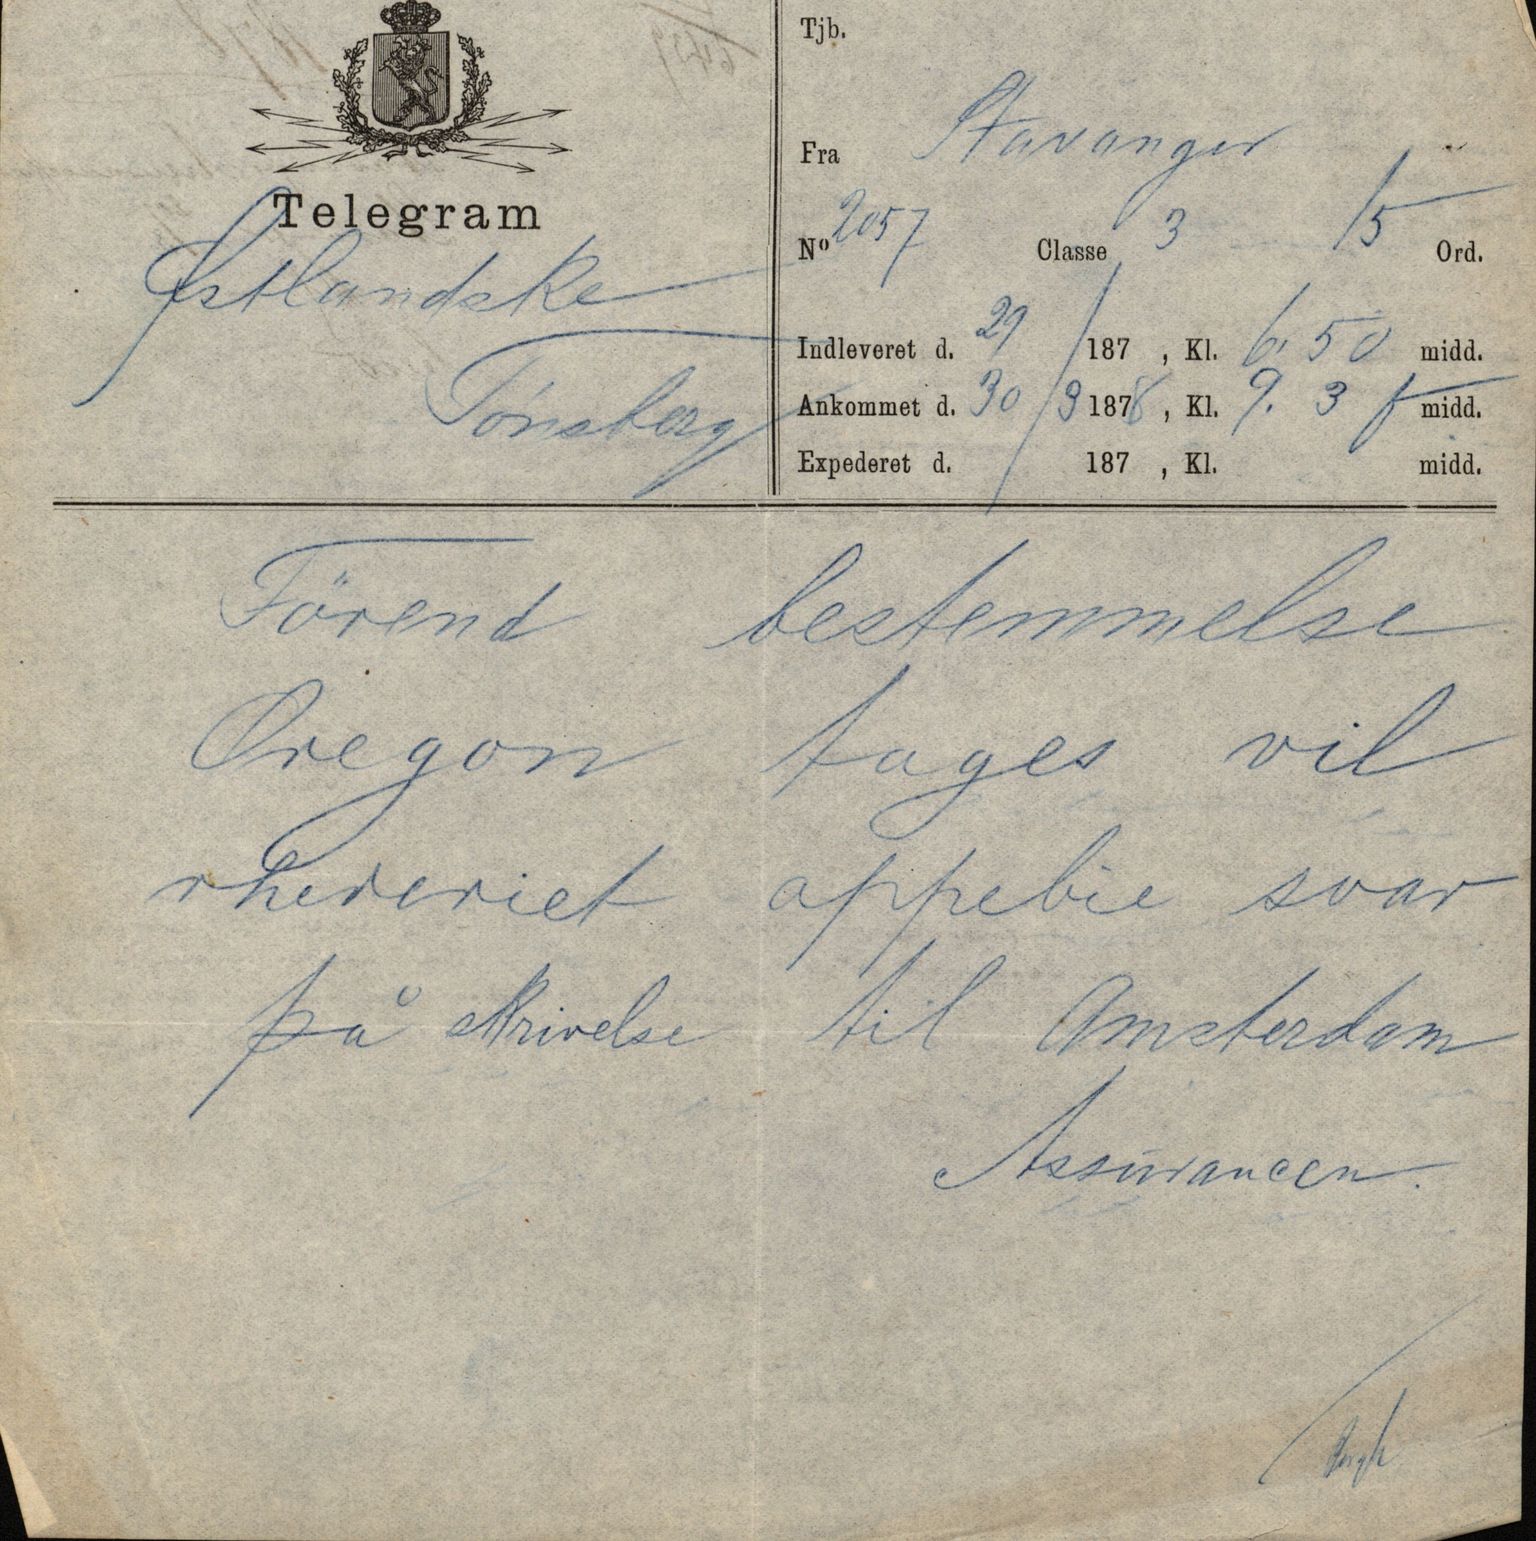 Telegram
Østlandske
Tönsberg
Tjb.
Fra Stavanger
No 2057 Classe 3 15 Ord.
Indleveret d. 29 / 187 , Kl. 6. 50 midd.
Ankommet d. 30 / 3 1878 , Kl. 9. 3 f midd.
Expederet d. / 187 , Kl. midd.
Förend bestemmelse
Oregon tages vil
rhederiet oppebie svar
på skrivelse til Amsterdam
Assürancen.